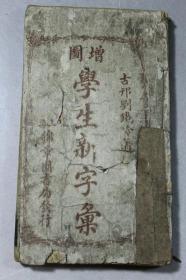 增圖
古邗劉鐵冷
學生新字彙
圖書局發行